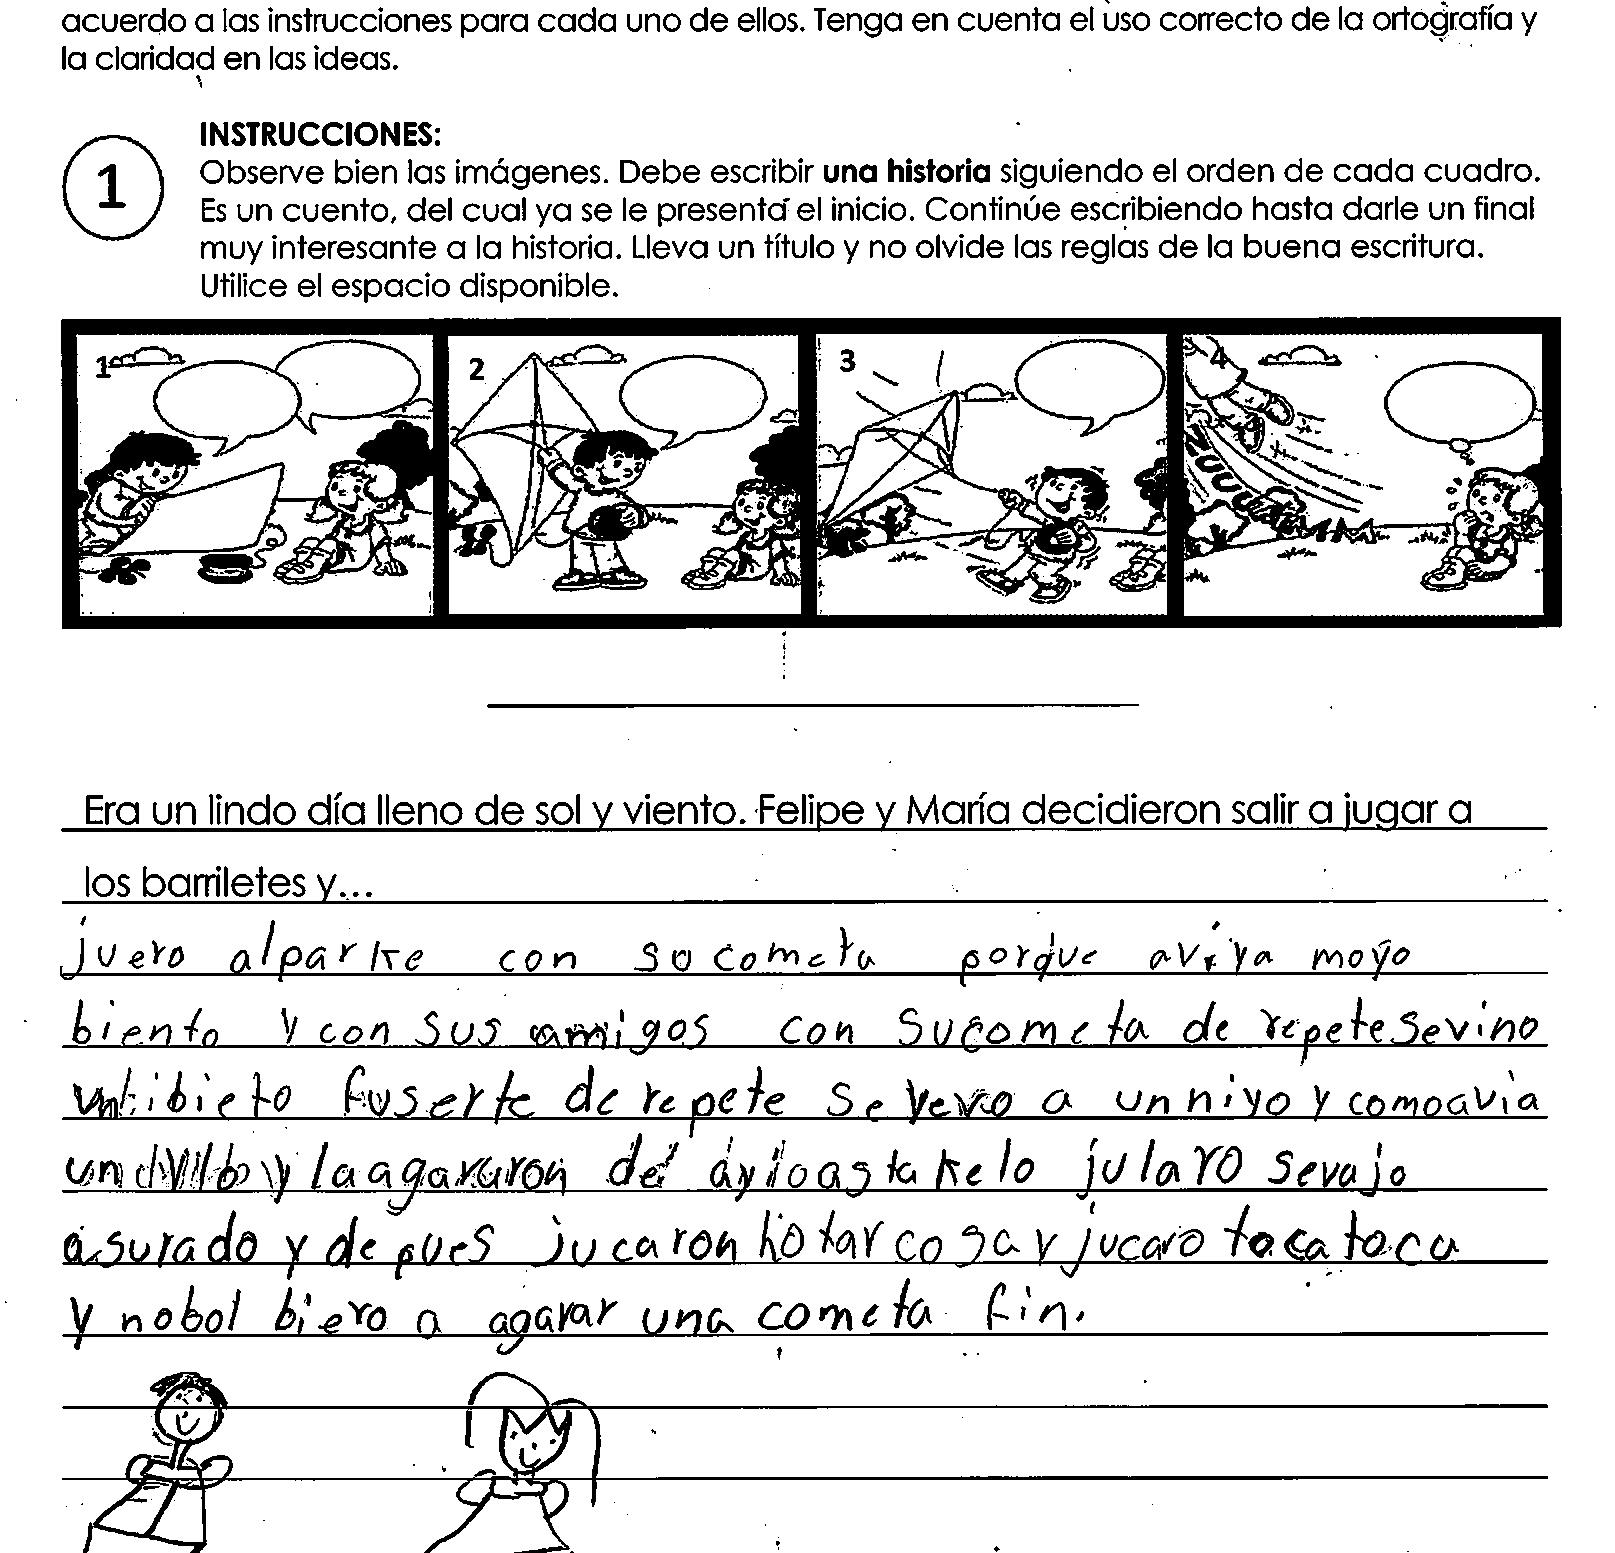 acuerdo a las instrucciones para cada uno de ellos. Tenga en cuenta el uso correcto de la ortografía y
la claridad en las ideas.
INSTRUCCIONES:
1
Observe bien las imágenes. Debe escribir una historia siguiendo el orden de cada cuadro.
Es un cuento, del cual ya se le presenta el inicio. Continúe escribiendo hasta darle un final
muy interesante a la historia. Lleva un título y no olvide las reglas de la buena escritura.
Utilice el espacio disponible.
1 2 3 4
ZUUUUMMM
Era un lindo día lleno de sol y viento. Felipe y María decidieron salir a jugar a
los barriletes y...
juero alparke con su cometa porque aviya moyo
biento y con sus amigos con su cometa de repete sevino
bieto fuserte de repete se a un niyo y comoavia
un y laagararon del ayloasta kelo jularo sevajo
asurado y depues jucaron hotar cosa y jucaro toca toca
y nobol biero a agarar una cometa fin.